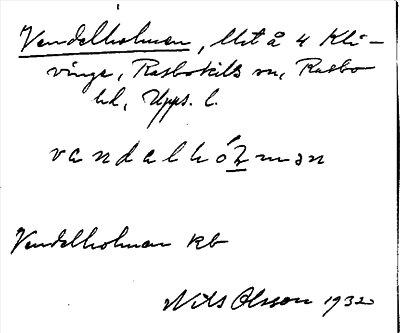 Vendelholmen, Utå 4 Kli-
vinge, Rasbokils sn, Rasbo
hd, Upps. l.
vandalhólmən
Vendelholmen kb
Nils Olsson 1932